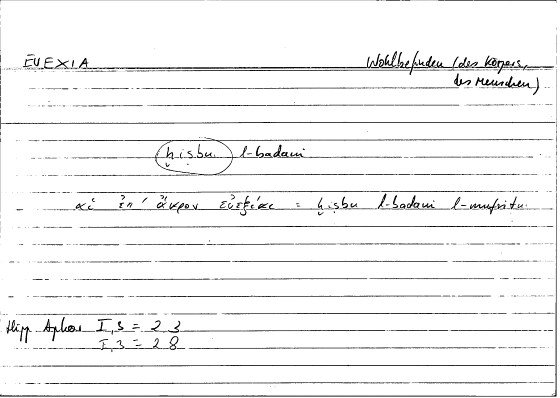 EUEXIA
Wohlbefinden (des Körpers,
des Menschen)
ḫiṣbu l-badani
αἱ ἐπ' ἄκρον εὐεξίαι = ḫiṣbu l-badani l-mufriṭu
Hipp Aphor I, 3 = 2 3
I, 3 = 2 8